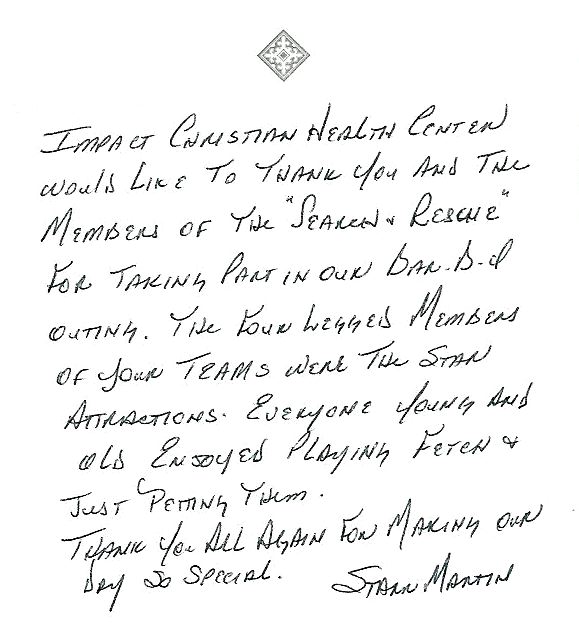 Impact Christian Health Center
would like to thank you and the
members of the "Search & Rescue"
for taking part in our Bar-B-Q
outing. The four legged members
of your teams were the star
attractions. Everyone young and
old enjoyed playing fetch &
just petting them.
Thank you all again for making our
day so special. Starr Martin